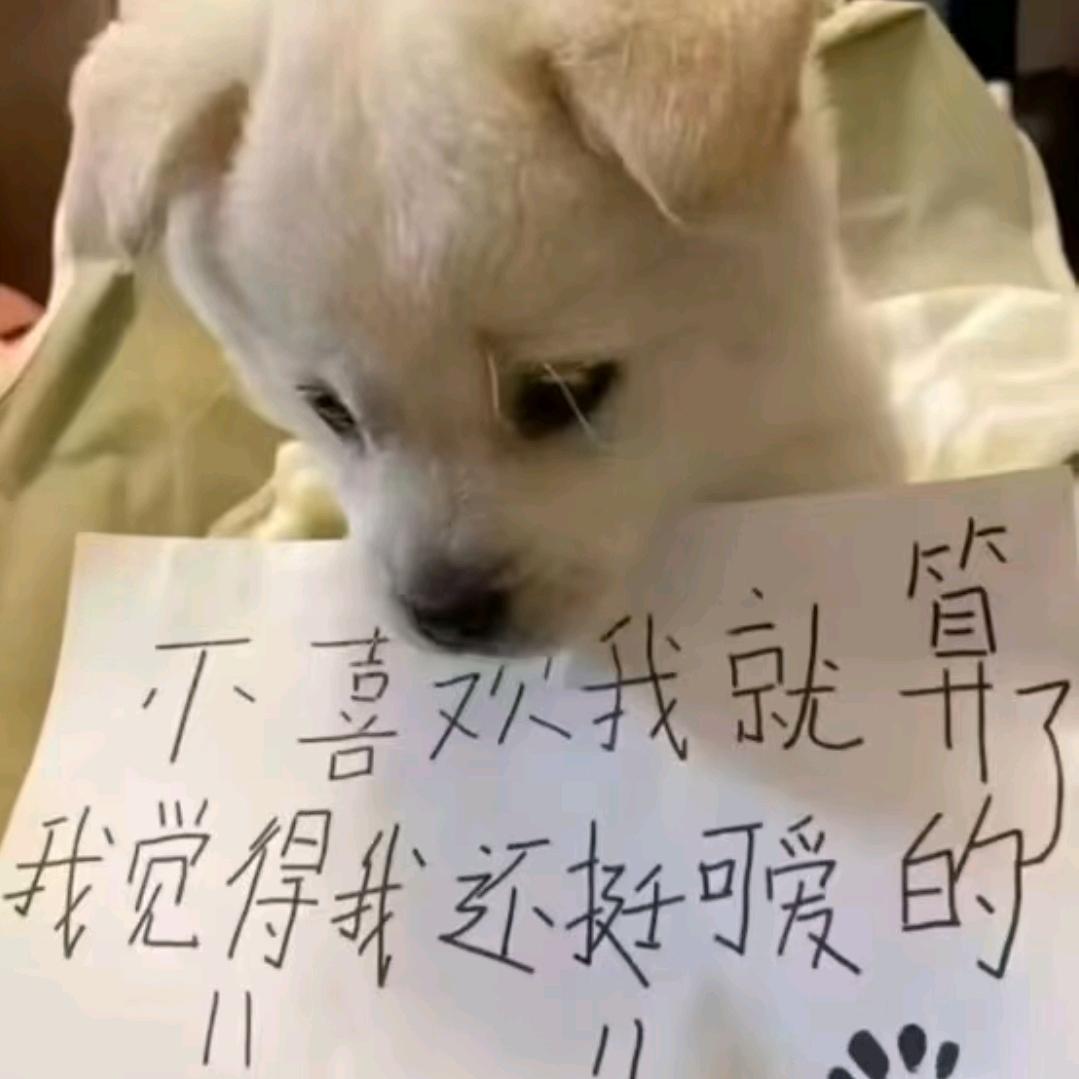 不喜欢我就算了
我觉得我还挺可爱的